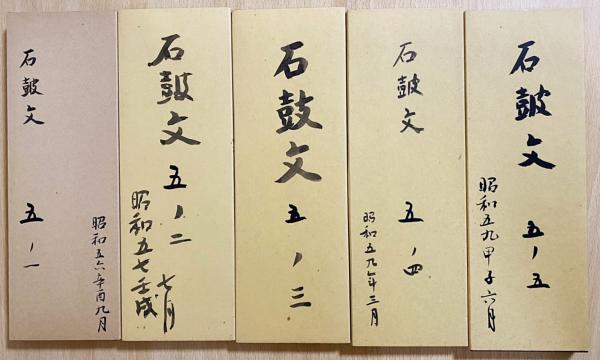 石鼓文 五ノ一
昭和五六辛酉九月
石鼓文 五ノ二
七月
昭和五七壬戌
石鼓文 五ノ三
石鼓文 五ノ四
昭和五九年三月
石鼓文 五ノ五
昭和五九甲子六月